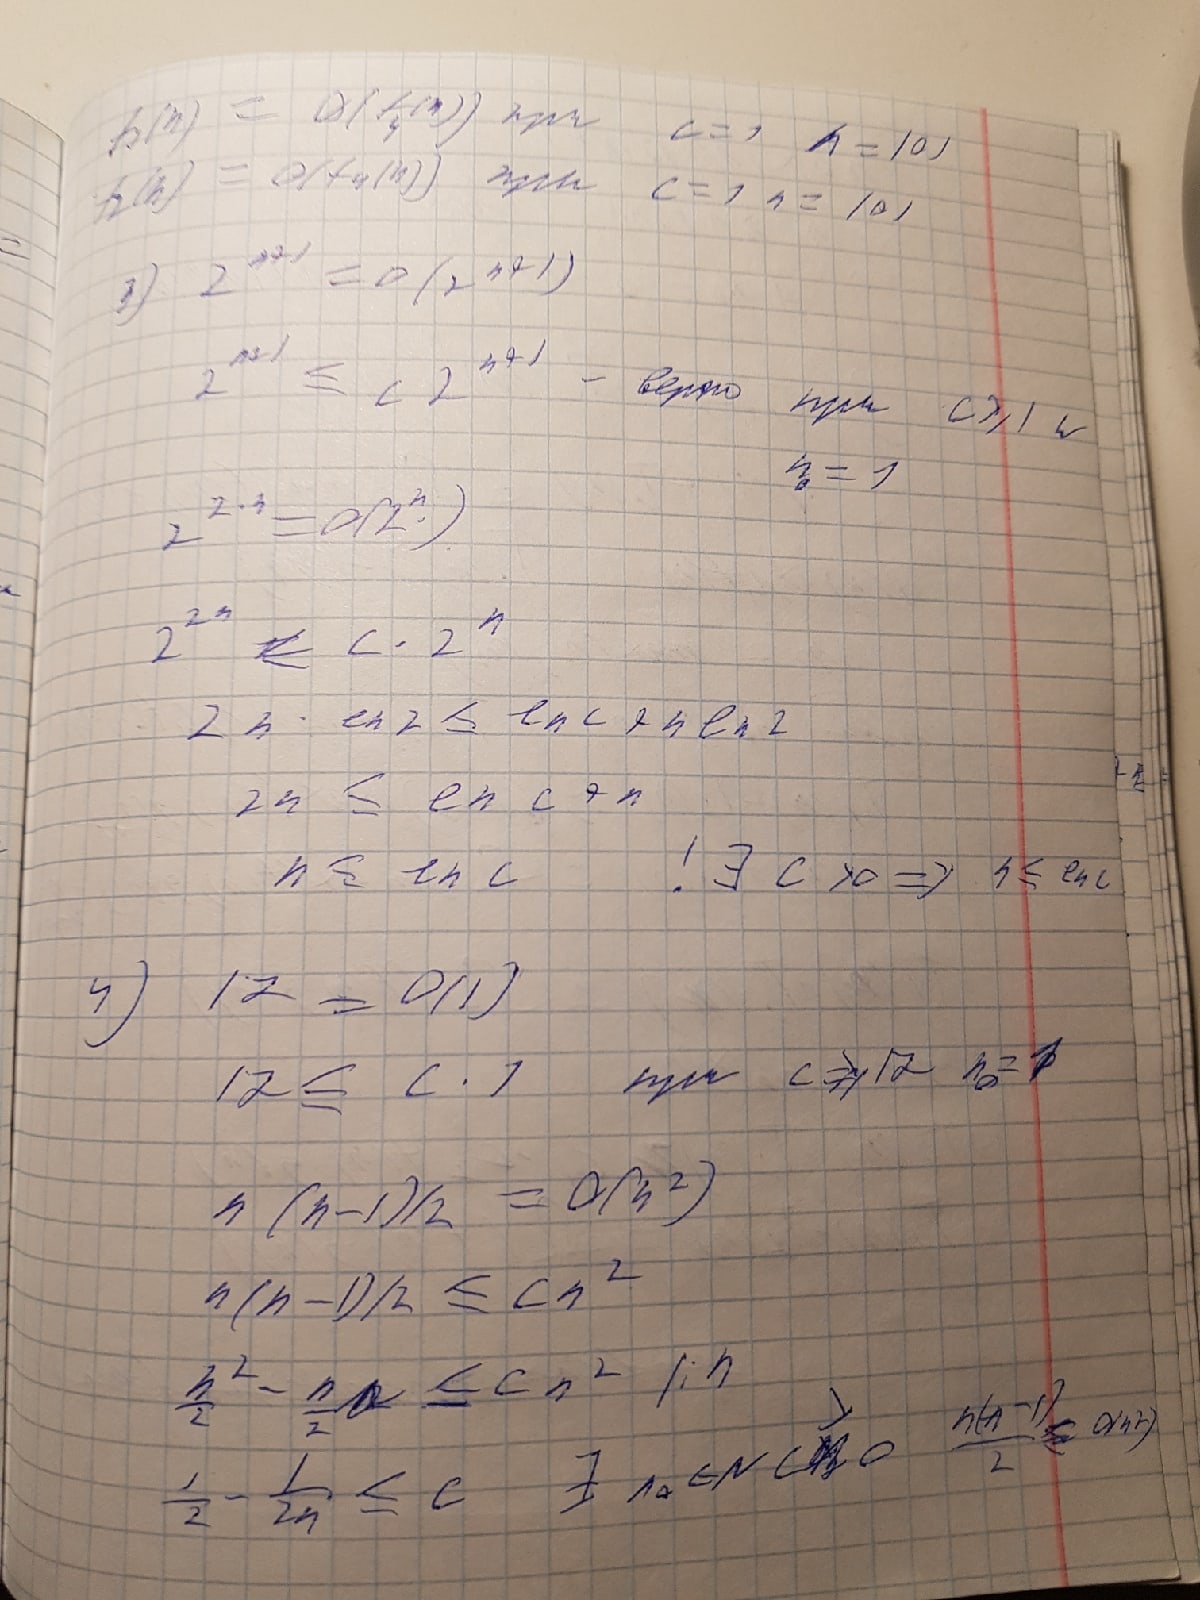 f₂(n) = O(f₄(n)) при c=1 n=101
f₂(n) = O(f₄(n)) при c=1 n=101
3) 2^{n+1} = O(2^{n+1})
2^{n+1} ≤ c 2^{n+1} - верно при c ≥ 1 и
n₀ = 1
2^{2·n} = O(2^n)
2^{2n} ≤ c · 2^n
2n · ln2 ≤ ln c + n ln 2
2n ≤ ln c + n
n ≤ ln c ! ∃ c >0 => n ≤ ln c
4) 12 = O(1)
12 ≤ c · 1 при c ≥ 12 n₀ = 1
n(n-1)/2 = O(n²)
n(n-1)/2 ≤ cn²
n²/2 - n/2 ≤ cn² |: n
1/2 - 1/2n ≤ c ∃ n₀ ∈ N c > 0 n(n-1)/2 ≤ O(n²)